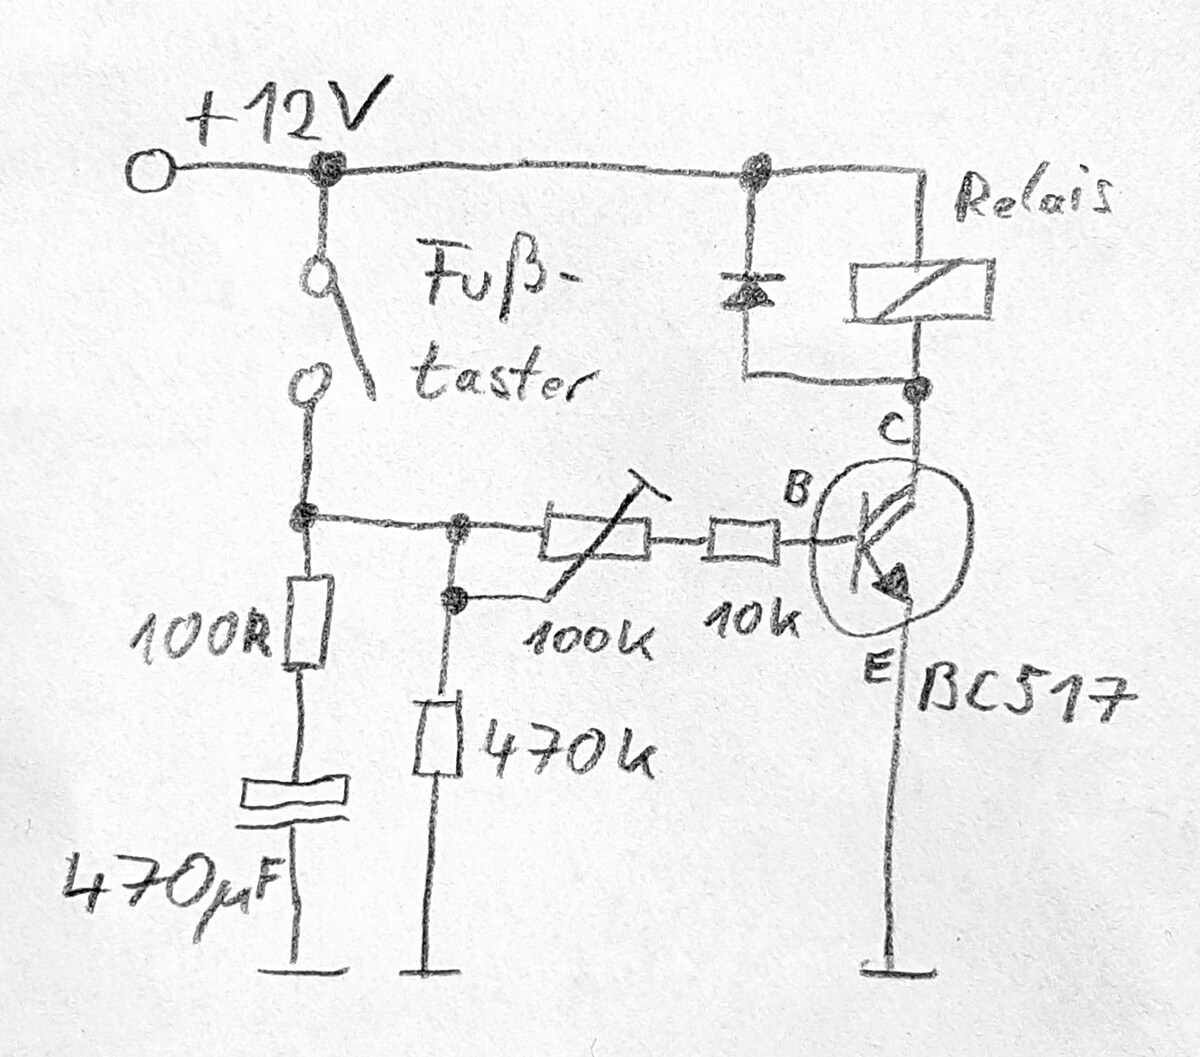 +12V
Relais
Fuß-
taster
C
B
100R
100k
10k
E
BC517
470k
470µF